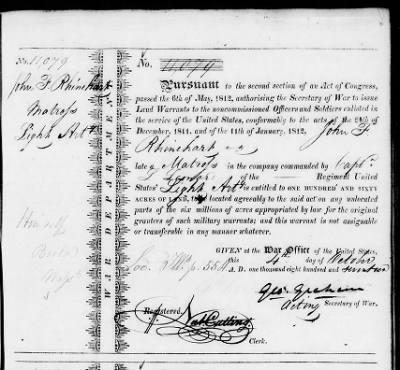 No. 11,079
No. 11079
John F Rhinehart
Matross
Light Arty
WAR DEPARTMENT
PURSUANT to the second section of an Act of Congress,
passed the 6th of May, 1812, authorising the Secretary of War to issue
Land Warrants to the noncommissioned Officers and Soldiers enlisted in
the service of the United States, conformably to the acts of the 24th of
December, 1811, and of the 11th of January, 1812, John F
Rhinehart
late a Matross in the company commanded by Capt
of the Regiment United
States' Light Arty is entitled to ONE HUNDRED AND SIXTY
ACRES OF LAND, to be located agreeably to the said act on any unlocated
parts of the six millions of acres appropriated by law for the original
grantees of such military warrants; and this warrant is not assignable
or transferable in any manner whatever.
GIVEN at the War Office of the United States,
this 4th day of October
A. D. one thousand eight hundred and
Geo: Graham
Acting Secretary of War.
Registered,
Nat Cutting
Clerk.
Himself
Boston